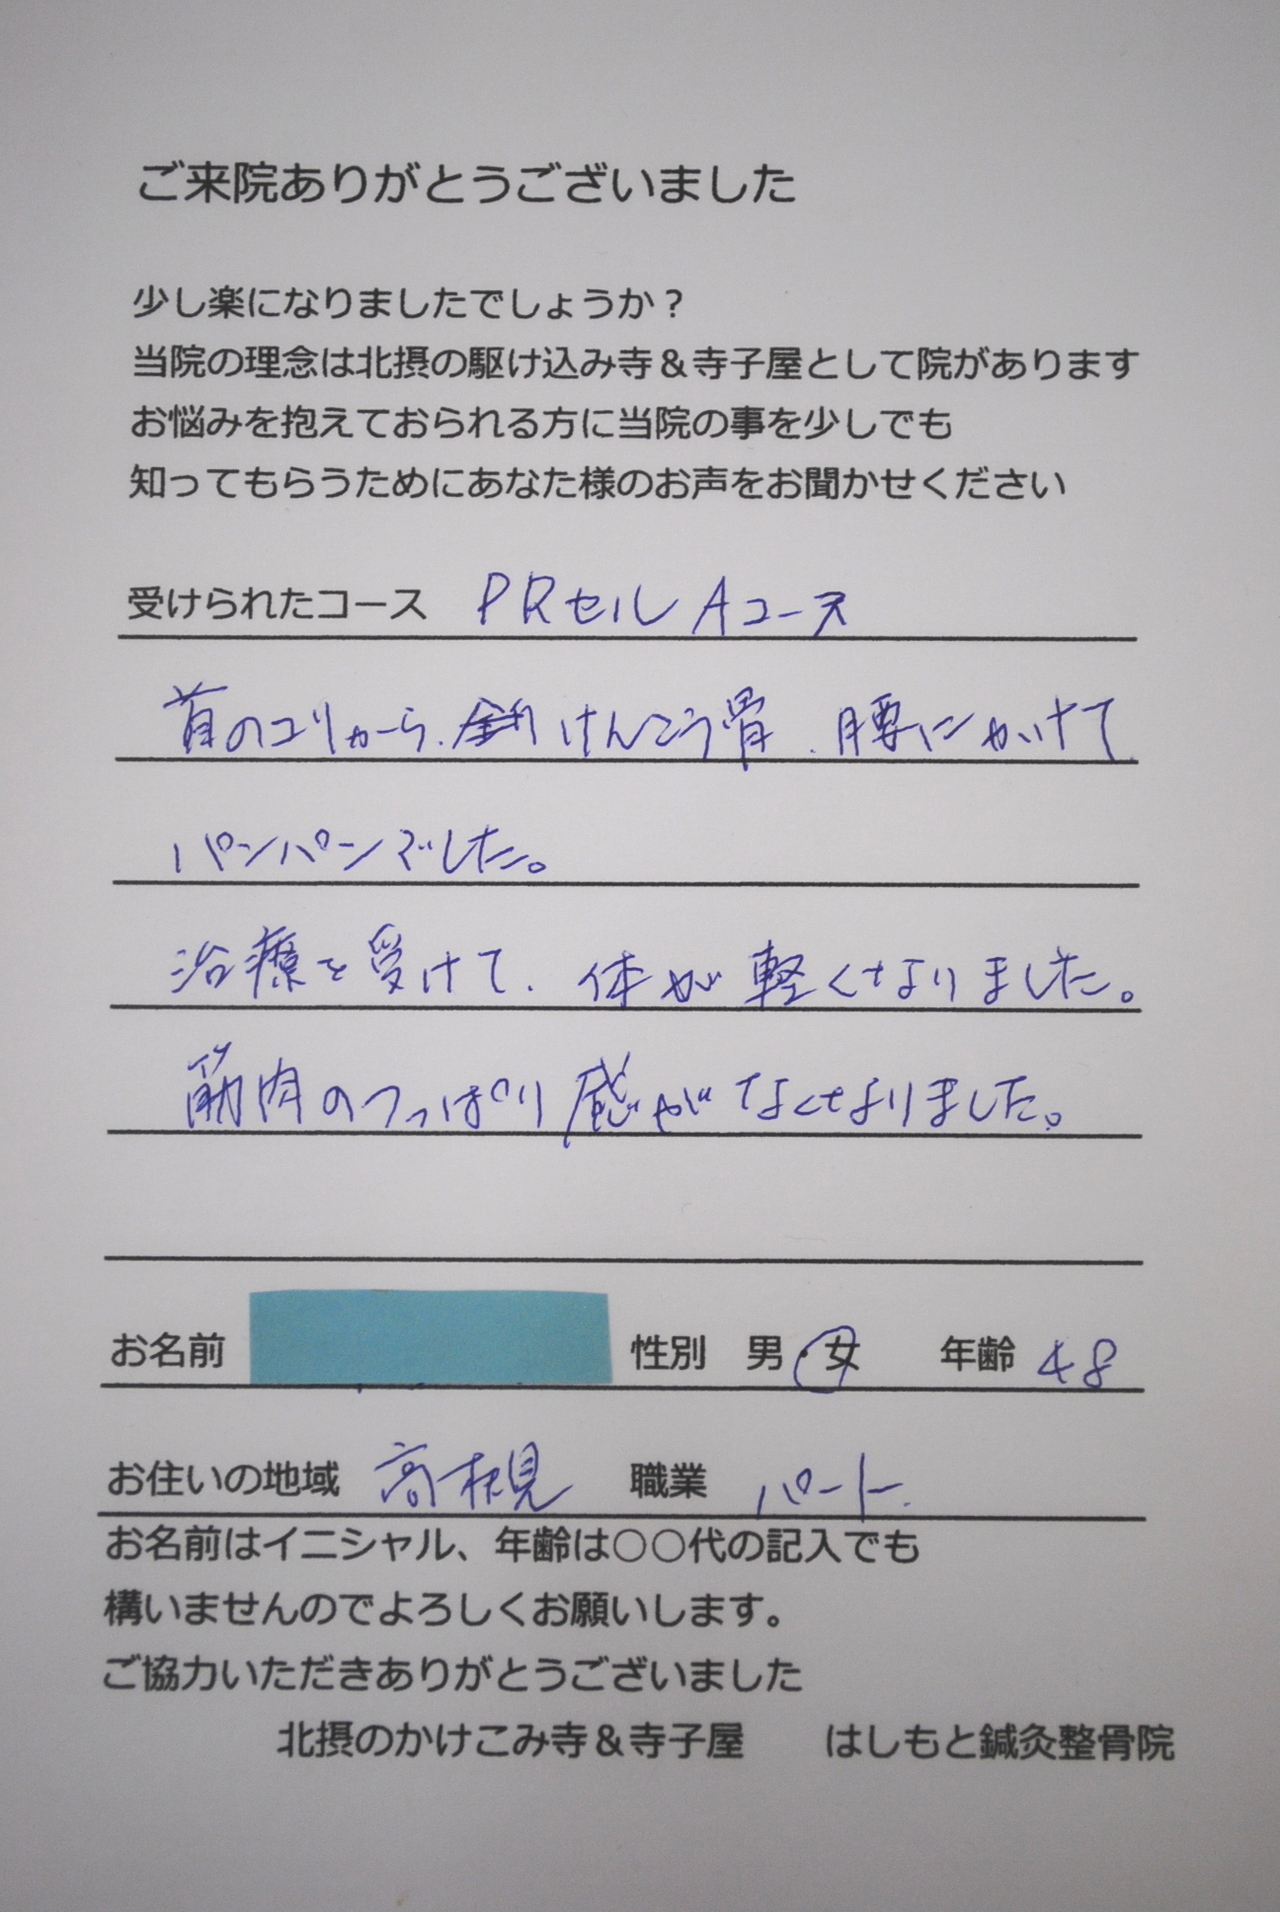 ご来院ありがとうございました
少し楽になりましたでしょうか？
当院の理念は北摂の駆け込み寺＆寺子屋として院があります
お悩みを抱えておられる方に当院の事を少しでも
知ってもらうためにあなた様のお声をお聞かせください
受けられたコース PRセル Aコース
首のコリから、けんこう骨、腰にかけて
パンパンでした。
治療を受けて、体が軽くなりました。
筋肉のつっぱり感がなくなりました。
お名前 性別 男・女 年齢 48
お住いの地域 高槻 職業 パート
お名前はイニシャル、年齢は○○代の記入でも
構いませんのでよろしくお願いします。
ご協力いただきありがとうございました
北摂のかけこみ寺＆寺子屋 はしもと鍼灸整骨院